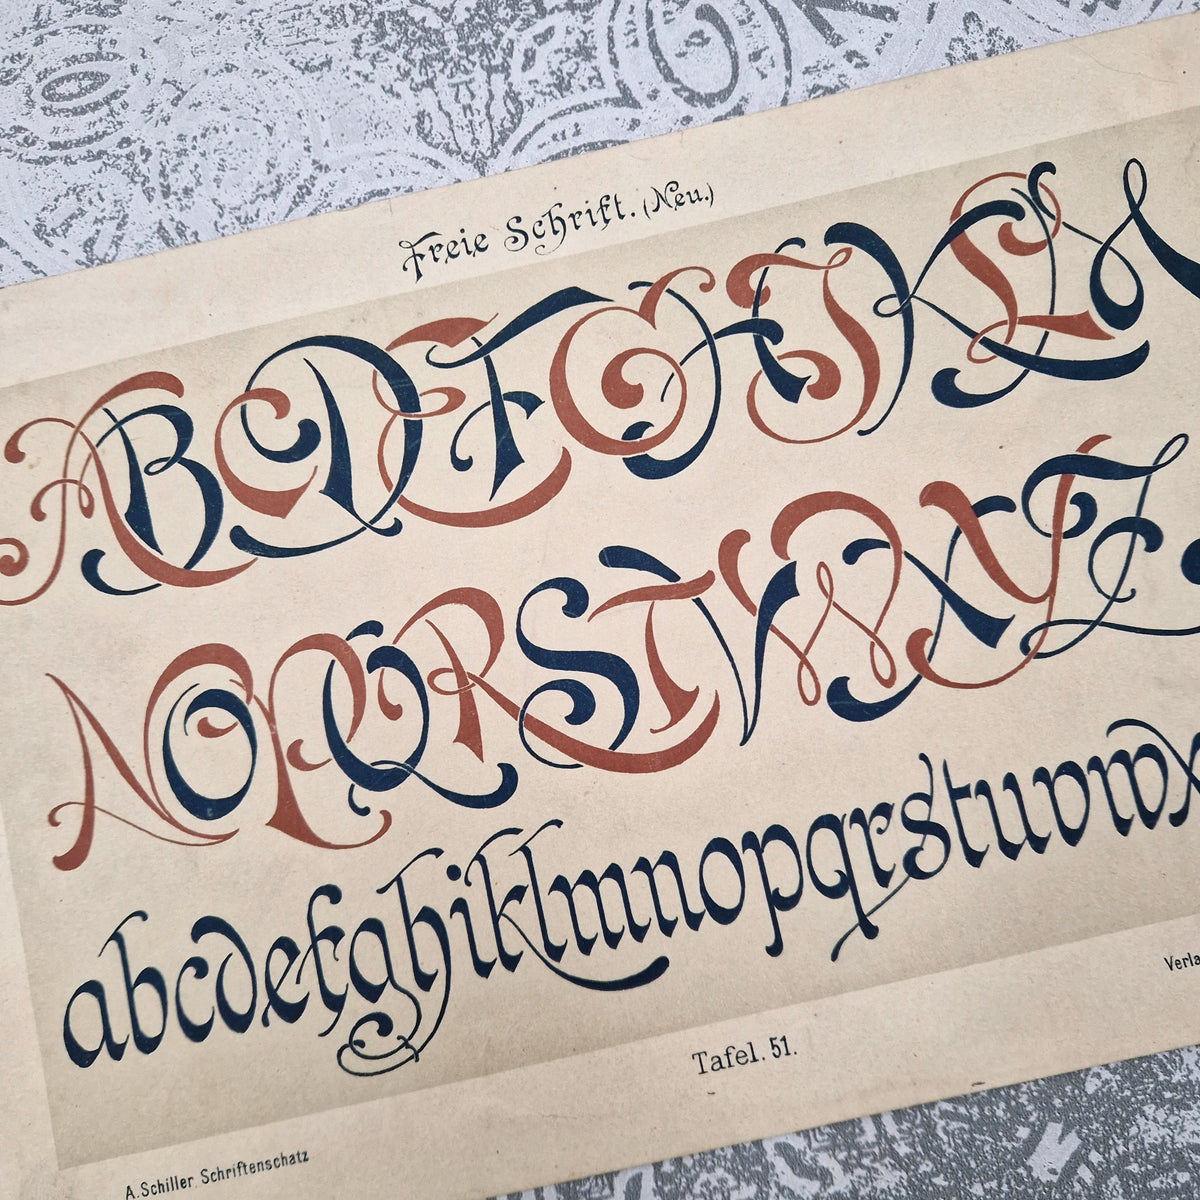 Freie Schrift. (Neu.)
ABCDEFGHIJKLM
NOPQRSTVWXYZ
abcdefghiklmnopqrstuvwx
Tafel. 51.
A. Schiller, Schriftenschatz
Verla